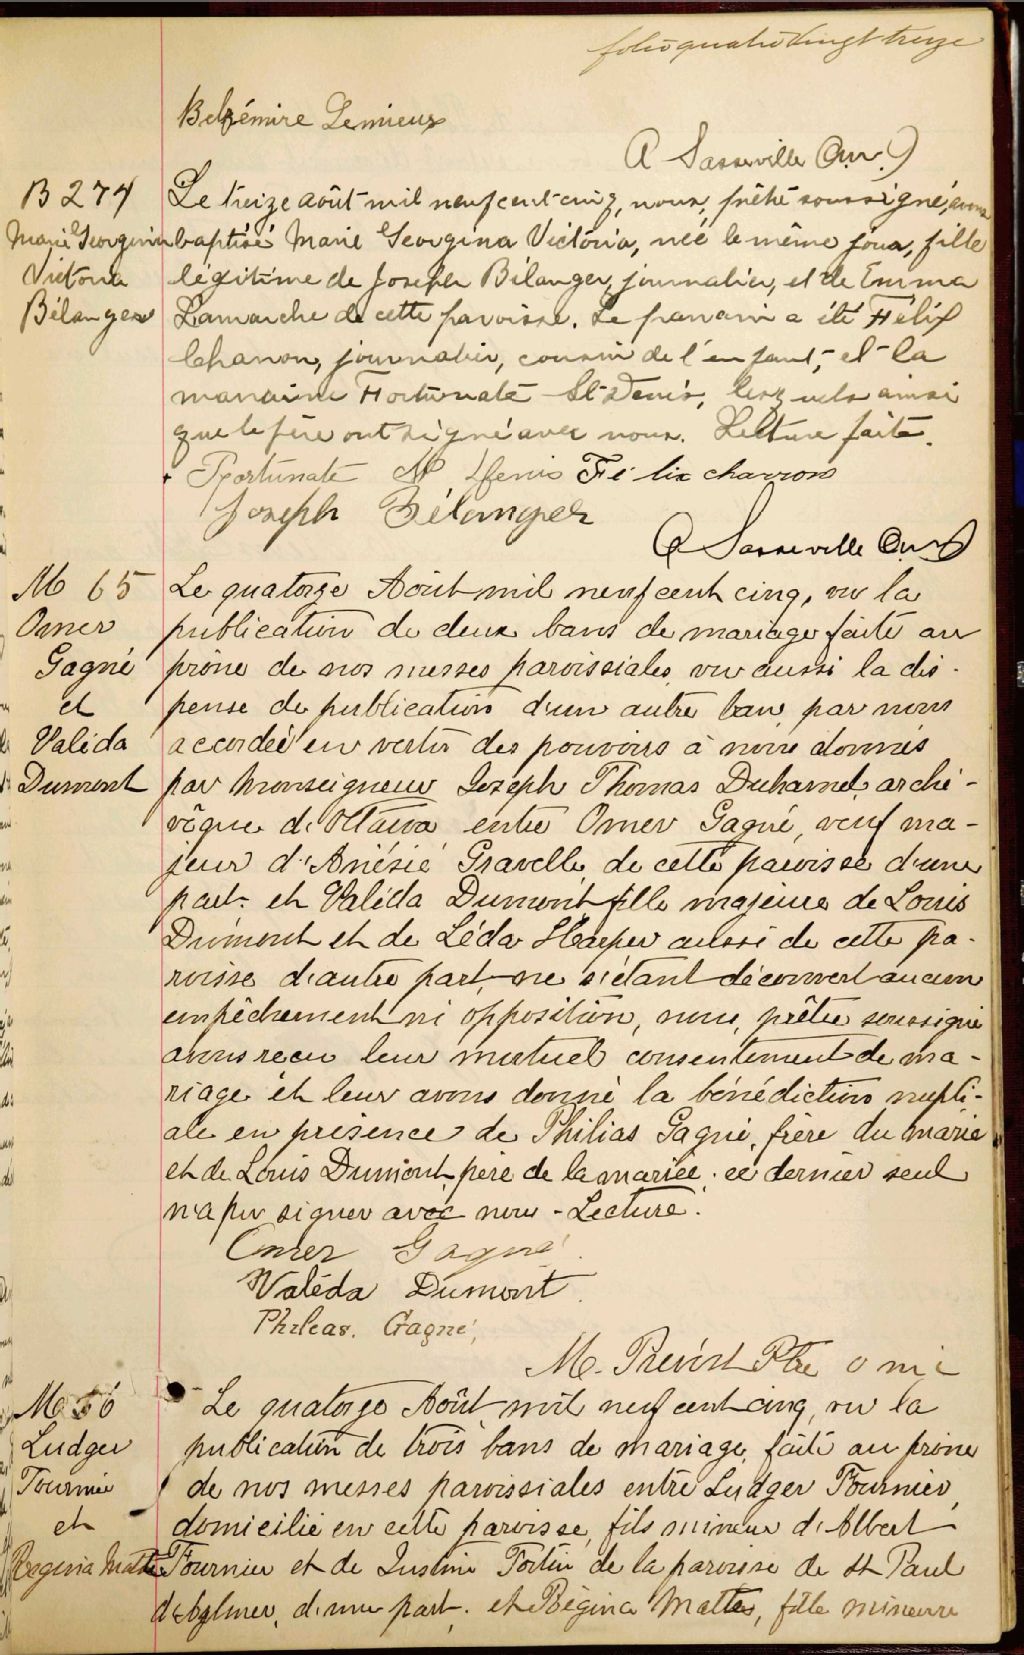 folio quatre vingt treize
Belzémire Lemieux
A Sasseville Ouv.
B 274
Marie Georgina
Victoria
Bélanger
Le treize août mil neuf cent cinq, nous, prêtre soussigné, avons
baptisé Marie Georgina Victoria, née le même jour, fille
légitime de Joseph Bélanger, journalier, et de Emma
Lamarche de cette paroisse. Le parrain a été Félix
Charron, journalier, cousin de l'enfant, et la
marraine Fortunate St Denis, lesquels ainsi
que le père ont signé avec nous. Lecture faite.
Fortunate St Denis Félix charron
Joseph Bélanger
A Sasseville
M 65
Omer
Gagné
et
Valéda
Dumont
Le quatorze Août mil neuf cent cinq, vu la
publication de deux bans de mariage faite au
prône de nos messes paroissiales, vu aussi la dis-
pense de publication d'un autre ban par nous
accordée en vertu des pouvoirs à nous donnés
par Monseigneur Joseph Thomas Duhamel, arche-
vêque d'Ottawa entre Omer Gagné, veuf ma-
jeur d'Anésie Gravelle, de cette paroisse d'une
part, et Valéda Dumont fille majeure de Louis
Dumont et de Léda Harper aussi de cette pa-
roisse d'autre part, ne s'étant découvert aucun
empêchement ni opposition, nous, prêtre soussigné
avons recu leur mutuel consentement de ma-
riage et leur avons donné la bénédiction nupti-
ale en présence de Philias Gagné, frère du marié
et de Louis Dumont, père de la mariée, ce dernier seul
n'a pu signer avec nous - Lecture.
Omer Gagné
Valéda Dumont
Phileas. Gagné,
M. Prévost Ptre o m i
M 66
Ludger
Fournier
et
Regina Matte
Le quatorze Août mil neuf cent cinq, vu la
publication de trois bans de mariage, faite au prône
de nos messes paroissiales entre Ludger Fournier,
domicilié en cette paroisse, fils mineur d'Albert
Fournier et de Justine Fortin de la paroisse de St Paul
d'Aylmer, d'une part, et Régina Matte, fille mineure